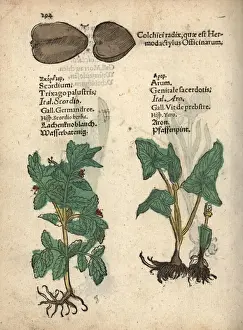 294
Colchici radix, quæ est Her-
modactylus Officinarum.
Scordium;
Trixago palustris;
Ital. Scordio,
Gall. Germandree.
Hisp. Scordio berba.
Lachenknoblauch.
Wasserbatenig.
Arum.
Genitale sacerdotis;
Ital. Aro,
Gall. Vit de prebstre.
Hisp. Yaro.
Aron.
Pfaffenpint.